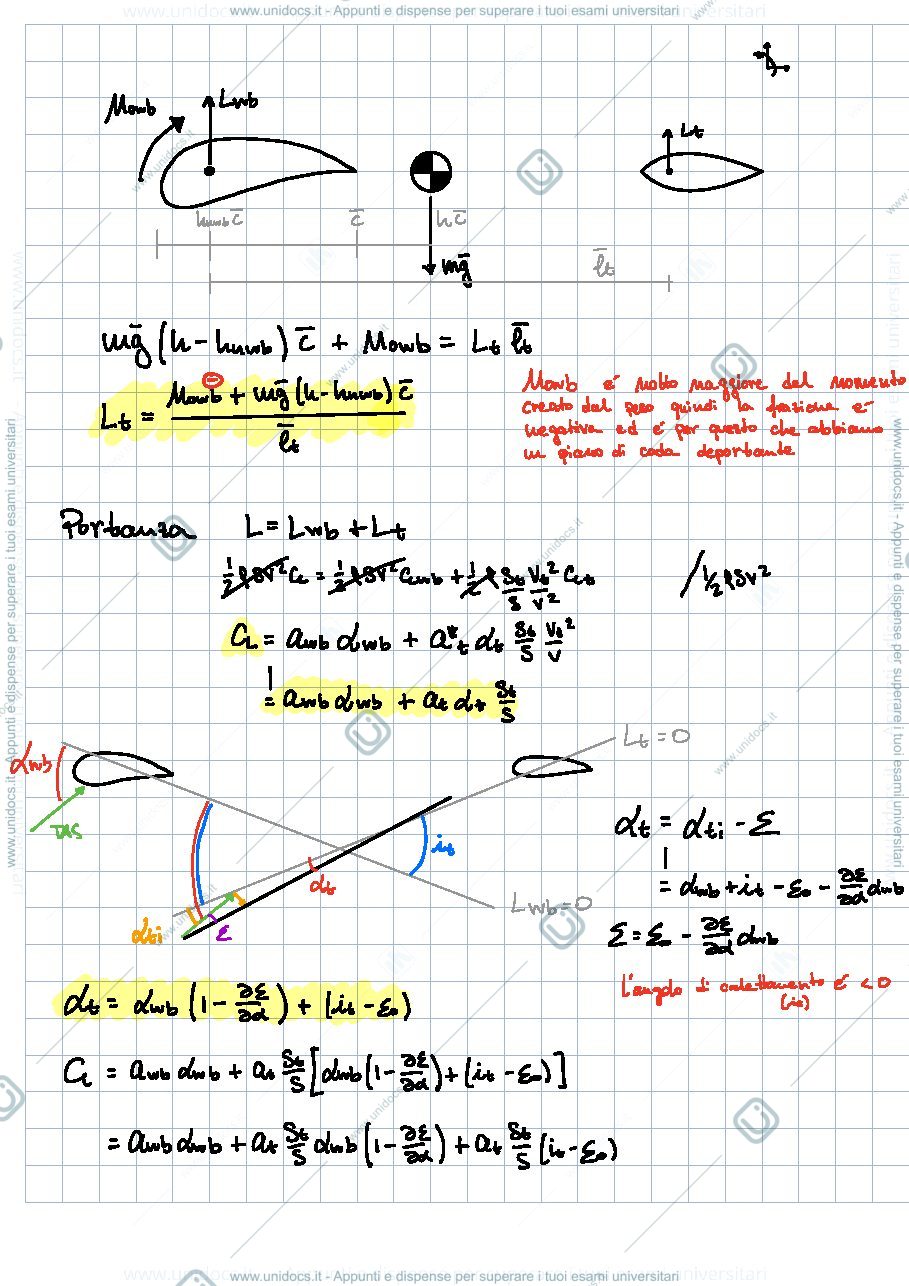 www.unidocs.it - Appunti e dispense per superare i tuoi esami universitari
Mowb
Lwb
Lt
hnwb c̄
c̄
h c̄
mḡ
l̄t
mḡ (h - hnwb) c̄ + Mowb = Lt l̄t
Lt = (Mowb + mḡ (h - hnwb) c̄) / l̄t
Mowb é molto maggiore del momento
creato dal peso quindi la frazione é
negativa ed é per questo che abbiamo
un piano di coda deportante
Portanza L = Lwb + Lt
½ρSV² CL = ½ρSV² CLwb + ½ρ St/S Vt²/V² CLt /½ρSV²
CL = awb αwb + a*t αt St/S Vt²/V
= awb αwb + at αt St/S
αwb
TAS
Lt = 0
it
αt
Lwb = 0
αti
ε
αt = αti - ε
= αwb + it - ε₀ - ∂ε/∂α αwb
ε = ε₀ - ∂ε/∂α αwb
L'angolo di calettamento é < 0
(it)
αt = αwb (1 - ∂ε/∂α) + (it - ε₀)
CL = awb αwb + at St/S [αwb (1 - ∂ε/∂α) + (it - ε₀)]
= awb αwb + at St/S αwb (1 - ∂ε/∂α) + at St/S (it - ε₀)
www.unidocs.it - Appunti e dispense per superare i tuoi esami universitari